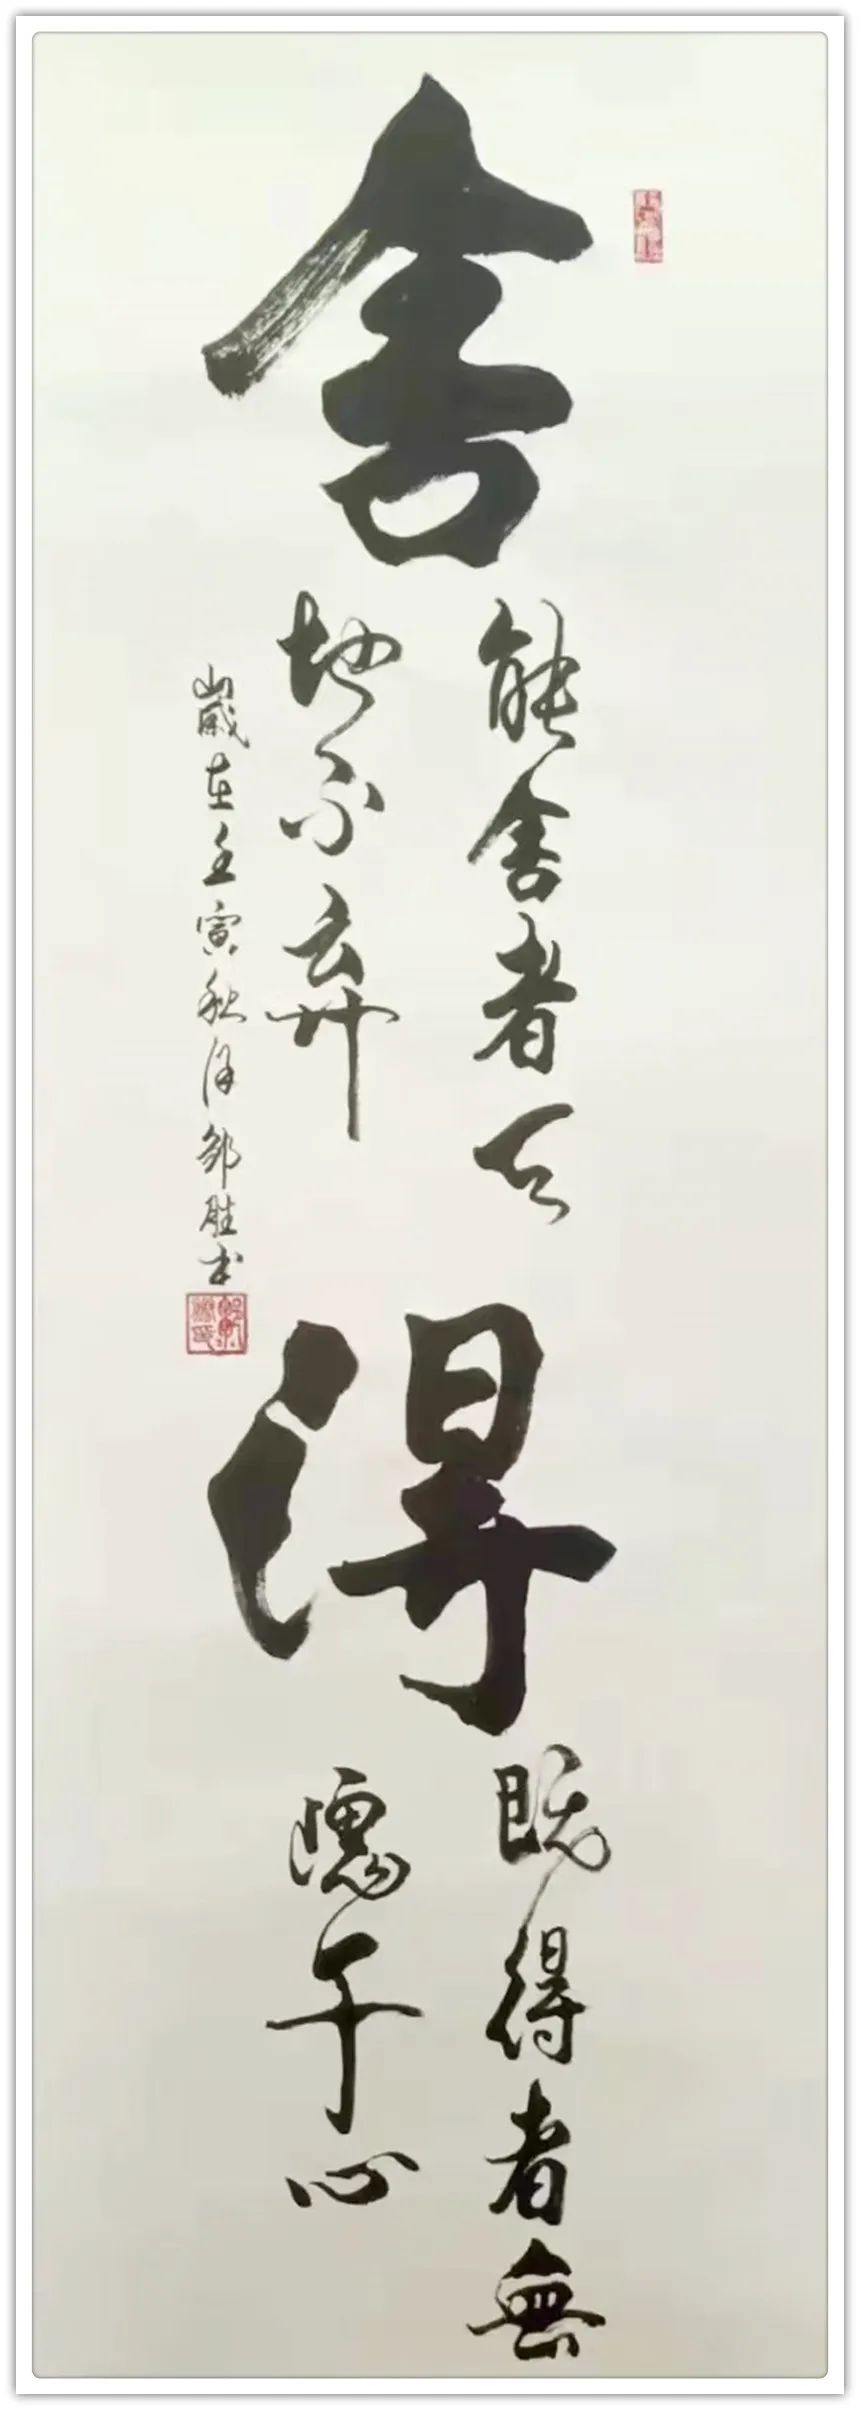 舍
能舍者天
地不弃
得
既得者無
隱于心
歲在壬寅秋月邹胜书